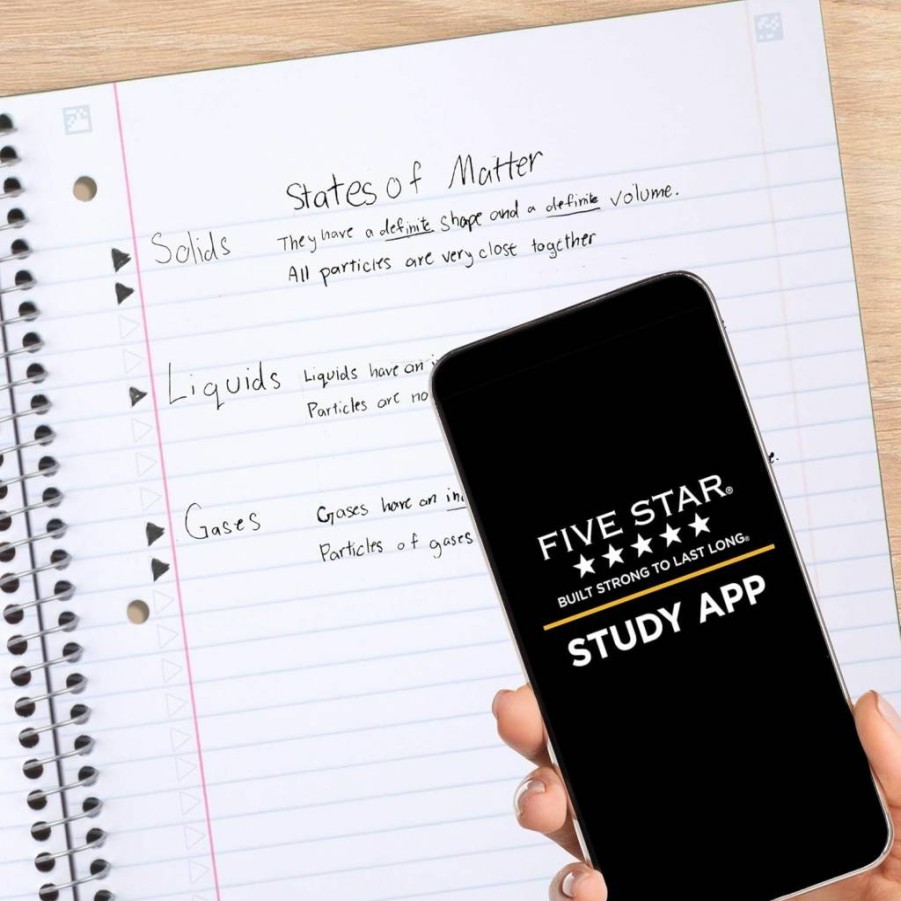 States of Matter
Solids They have a definite shape and a definite volume.
All particles are very close together
Liquids Liquids have an
Particles are no
Gases Gases have an in
Particles of gases
FIVE STAR®
BUILT STRONG TO LAST LONG®
STUDY APP